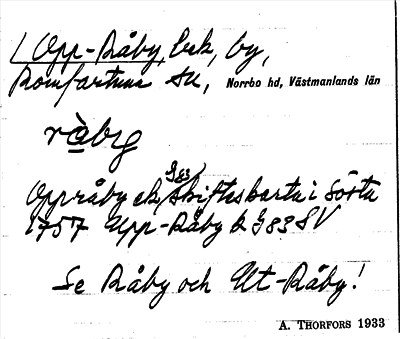 Opp-Råby, bek, by,
Romfartuna sn, Norrbo hd, Västmanlands län
råby
Oppråby ek skifteskarta i Sörtu
G83
1757 Upp-Råby k G83 SV
Se Råby och Ut-Råby!
A. THORFORS 1933